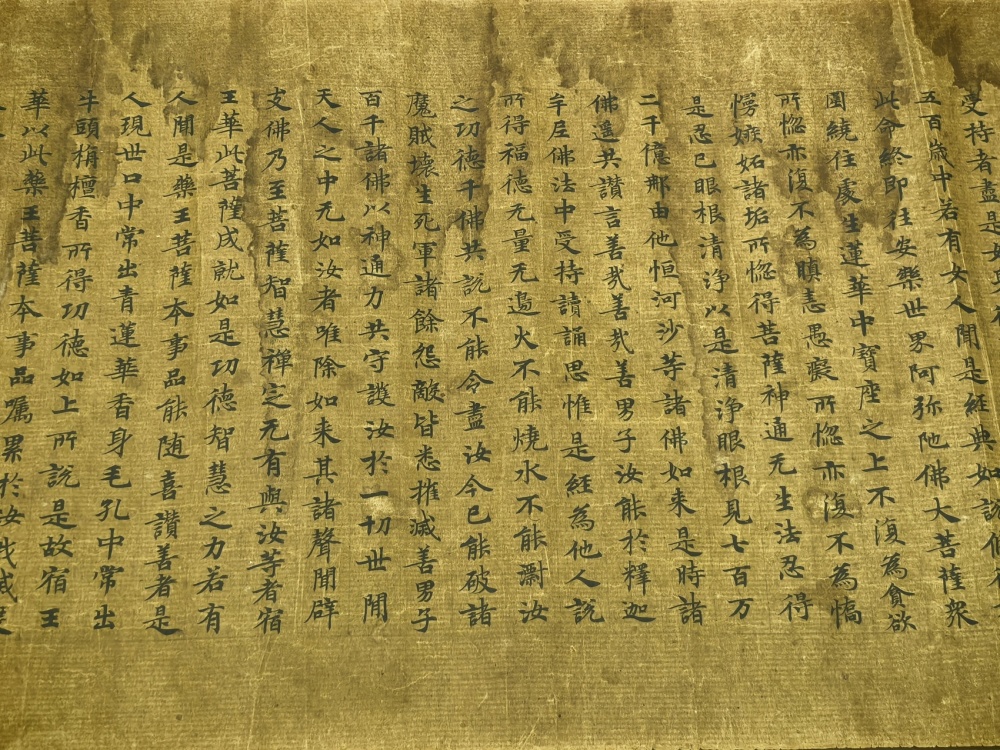 受持者盡是女身
五百歲中若有女人聞是經典如說修
此命終即往安樂世界阿弥陀佛大菩薩衆
圍繞住處生蓮華中寶座之上不復為貪欲
所惱亦復不為瞋恚愚癡所惱亦復不為憍
慢嫉妬諸垢所惱得菩薩神通无生法忍得
是忍已眼根清淨以是清淨眼根見七百万
二千億那由他恒河沙等諸佛如来是時諸
佛遥共讃言善哉善哉善男子汝能於釋迦
牟尼佛法中受持讀誦思惟是經為他人說
所得福德无量无邊火不能燒水不能漂汝
之功德千佛共說不能令盡汝今已能破諸
魔賊壞生死軍諸餘怨敵皆悉摧滅善男子
百千諸佛以神通力共守護汝於一切世間
天人之中无如汝者唯除如来其諸聲聞辟
支佛乃至菩薩智慧禪定无有與汝等者宿
王華此菩薩成就如是功德智慧之力若有
人聞是藥王菩薩本事品能随喜讃善者是
人現世口中常出青蓮華香身毛孔中常出
牛頭栴檀香所得功德如上所說是故宿王
華以此藥王菩薩本事品囑累於汝我滅度